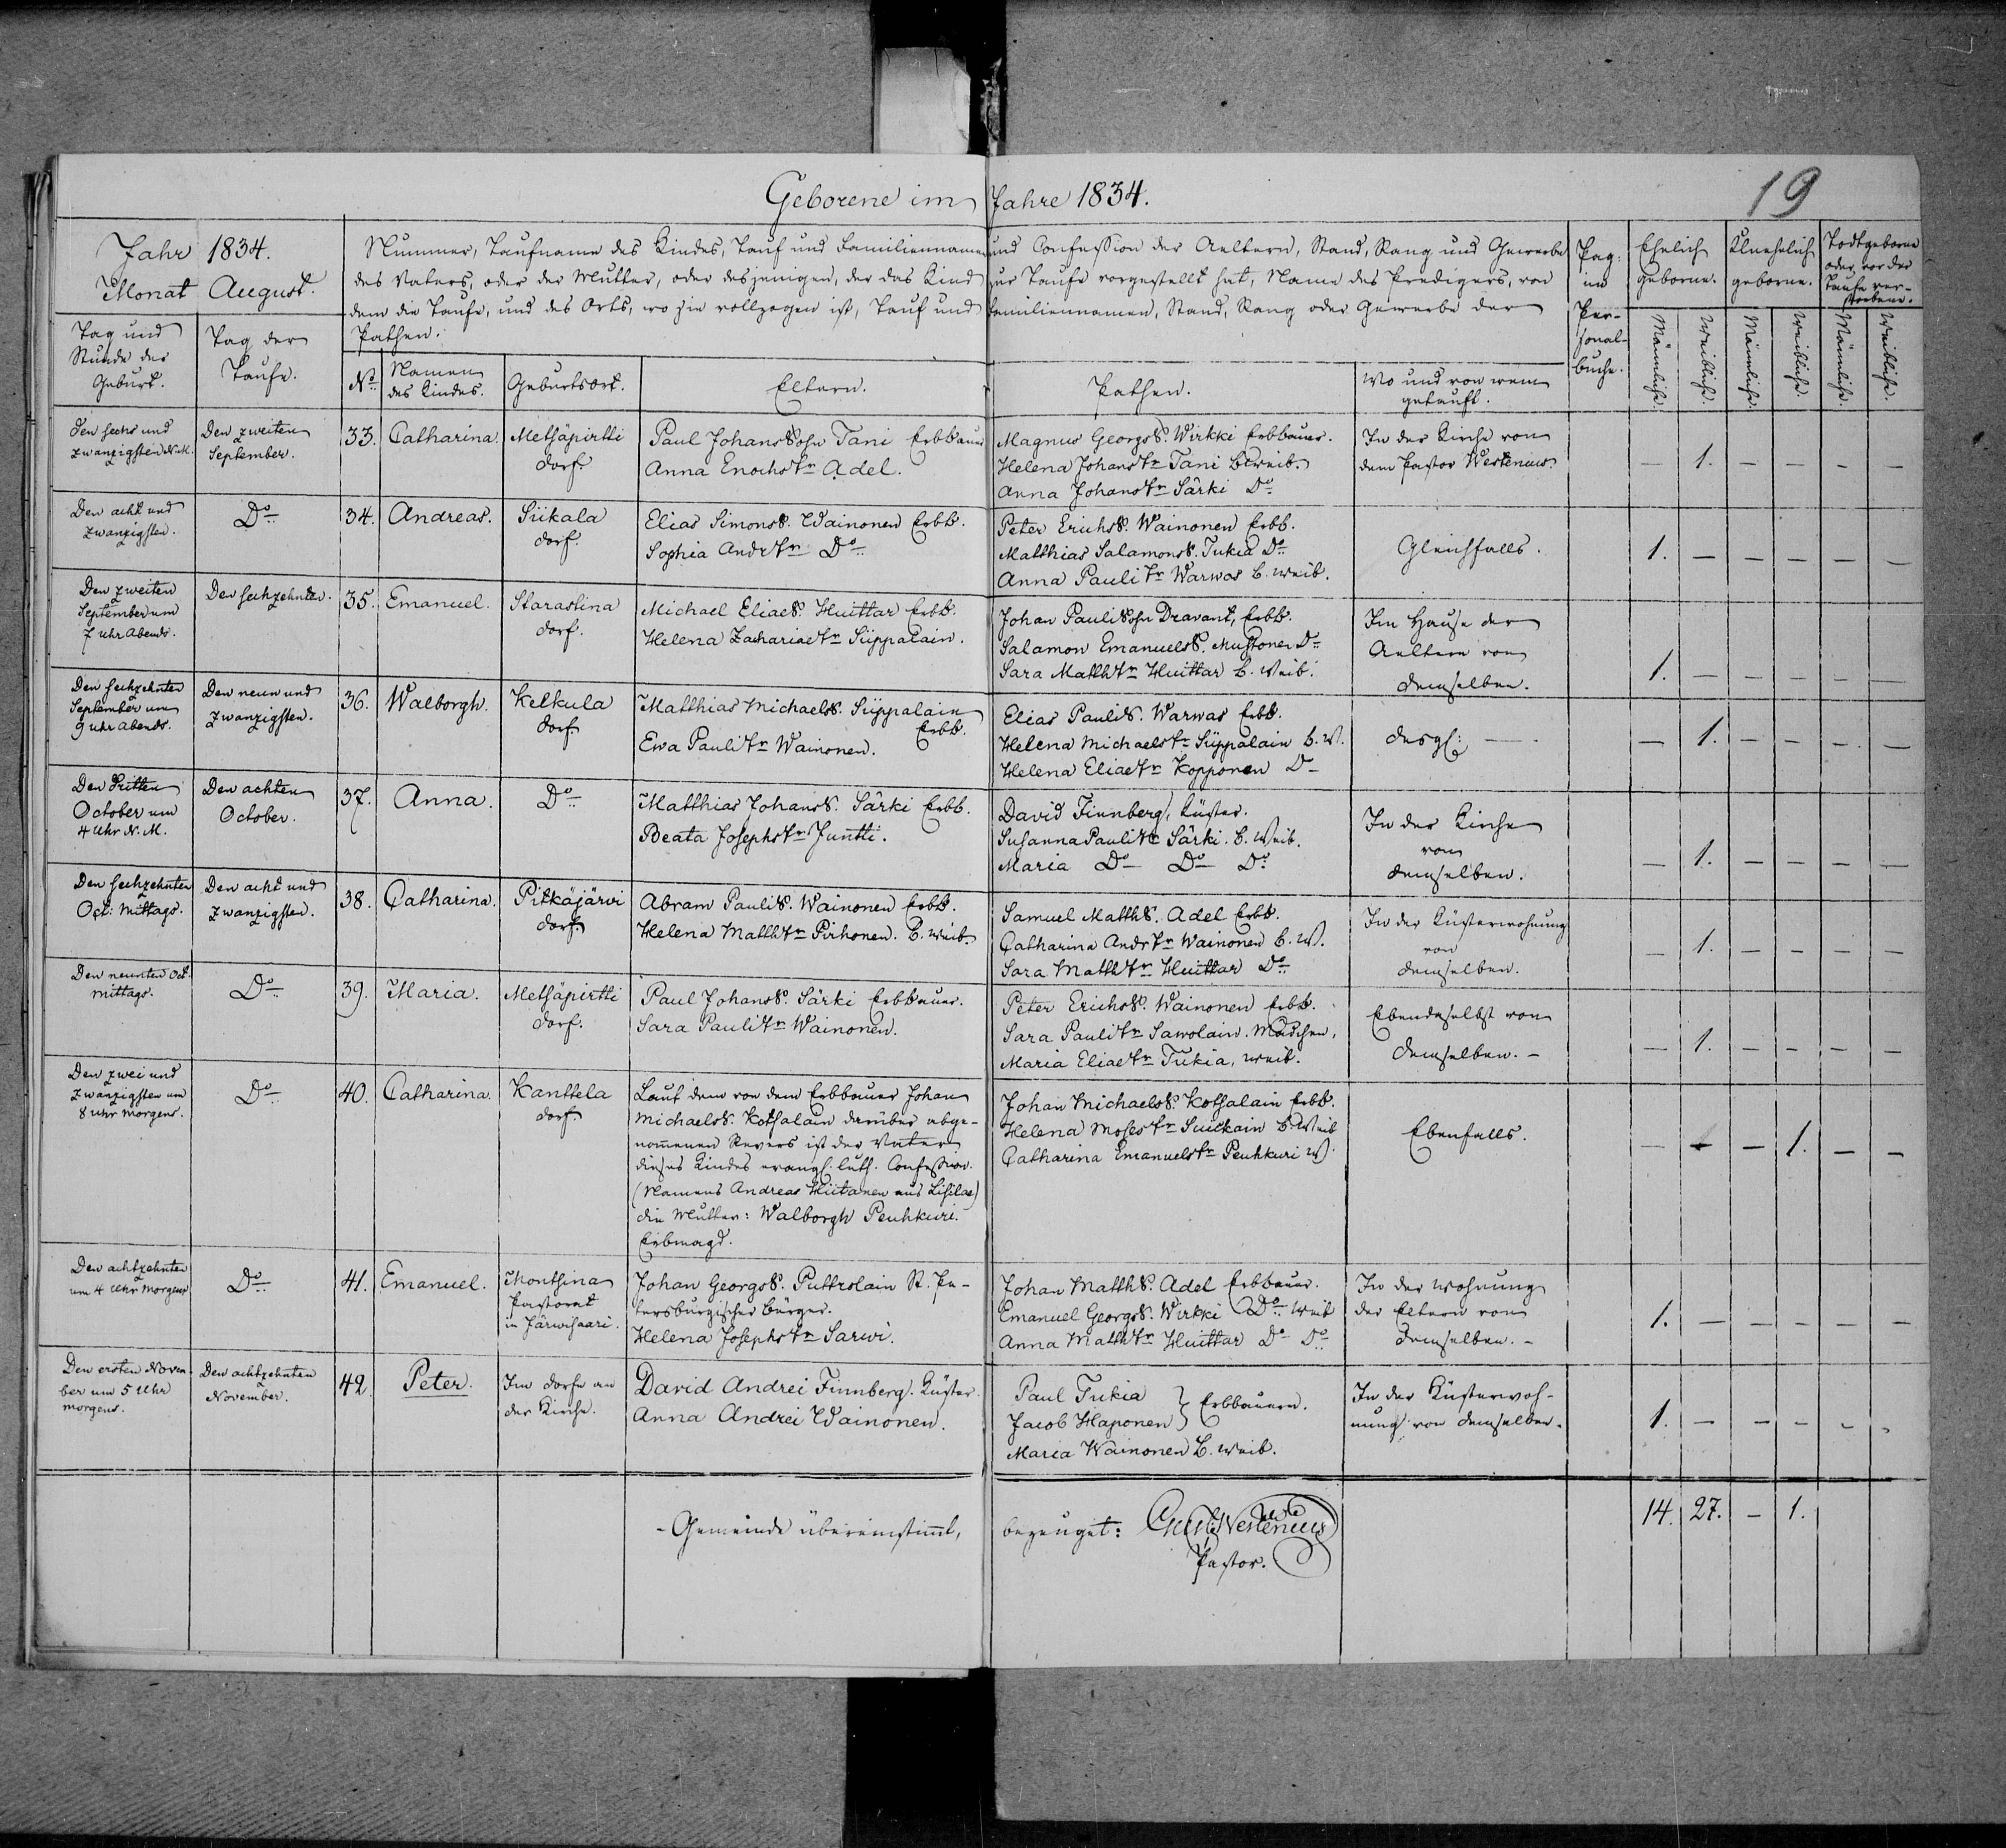 Geborene im Jahre 1834.
19
Jahr 1834.
Monat August.
Nummer, Taufname des Kindes, Tauf und Familiennamen und Confession der Aeltern, Stand, Rang und Gewerbe
des Vaters, oder der Mutter, oder desjenigen, der das Kind zur Taufe vorgestellt hat, Name des Predigers, von
dem die Taufe, und des Orts, wo sie vollzogen ist, Tauf und Familiennamen, Stand, Rang oder Gewerbe der
Pathen.
Pag:
im
Per-
sonal-
buche.
Ehelich
geborne.
Unehelich
geborne.
Todtgeborne
oder vor der
Taufe ver-
storbene.
Tag und
Stunde der
Geburt.
Tag der
Taufe.
No.
Namen
des Kindes.
Geburtsort.
Eltern.
Pathen.
Wo und von wem
getauft.
Männliche.
Weibliche.
Männliche.
Weibliche.
Männliche.
Weibliche.
Den sechs und
zwanzigsten N.M.
Den zweiten
September.
33.
Catharina.
Metsäpirtti
dorf.
Paul Johans Sohn Tani Erbbauer
Anna Enochstr Adel.
Magnus Georgs S. Wirkki Erbbauer.
Helena Johanstr Tani B.weib.
Anna Johanstr Särki Do
In der Kirche von
dem Pastor Westenius.
— 1. — — — —
Den acht und
zwanzigsten.
Do
34.
Andreas.
Siikala
dorf.
Elias Simons S. Wainonen Erbb.
Sophia Andrtr Do
Peter Erichs S. Wainonen Erbb.
Matthias Salamons S. Tukia Do
Anna Paulitr Warwas b. weib.
Gleichfalls.
1. — — — — —
Den zweiten
September um
7 Uhr Abends.
Den sechzehnten.
35.
Emanuel.
Starastina
dorf.
Michael Eliae S. Huittar Erbb.
Helena Zachariaetr Süppalain.
Johan Pauli Sohn Dravant, Erbb.
Salamon Emanuels S. Mustonen Do
Sara Matthtr Huittar b. Weib.
Im Hause der
Aeltern von
demselben.
1. — — — — —
Den sechzehnten
September um
9 Uhr Abends.
Den neun und
zwanzigsten.
36.
Walborgh.
Kelkula
dorf
Matthias Michaels S. Süppalain
Erbb.
Ewa Paulitr Wainonen.
Elias Pauli S. Warwas Erbb.
Helena Michaelstr Süppalain b. W.
Helena Eliaetr Kopponen Do
desgl: —
— 1. — — — —
Den Dritten
October um
4 Uhr N. M.
Den achten
October.
37.
Anna.
Do
Matthias Johans S. Särki Erbb.
Beata Josephstr Juntti.
David Finnberg, Küster.
Susanna Paulitr Särki. b. Weib.
Maria Do Do Do
In der Kirche
von
demselben.
— 1. — — — —
Den sechzehnten
Oct: Mittags.
Den acht und
zwanzigsten.
38.
Catharina.
Pitkäjärvi
dorf.
Abram Pauli S. Wainonen Erbb.
Helena Matthtr Pirhonen. B. weib.
Samuel Matth S. Adel Erbb.
Catharina Andrtr Wainonen b. W.
Sara Matthtr Huittar Do
In der Küsterwohnung
von
demselben.
— 1. — — — —
Den neunten Oct.
Mittags.
Do
39.
Maria.
Metsäpirtti
dorf.
Paul Johans S. Särki Erbbauer.
Sara Paulitr Wainonen.
Peter Erichs S. Wainonen Erbb.
Sara Paulitr Sawolain. Mädchen,
Maria Eliaetr Tukia, weib.
Ebendaselbst von
demselben. —
— 1. — — — —
Den zwei und
zwanzigsten um
8 Uhr Morgens.
Do
40.
Catharina.
Kanttela
dorf
Laut dem von dem Erbbauer Johan
Michaels S. Kotsalain darüber abge-
nommenen Revers ist der Vater
dieses Kindes evangl. luth. Confession.
(Namens Andreas Hiitanen aus Lisilae)
die Mutter: Walborgh Peuhkuri.
Erbmagd.
Johan Michaels S. Kotsalain Erbb.
Helena Mosestr Suikain b. Weib
Catharina Emanuelstr Peuhkuri W.
Ebenfalls.
— — — 1. — —
Den achtzehnten
um 4 Uhr Morgens
Do
41.
Emanuel.
Montsina
Pastorat
in Järwisaari.
Johan Georgs S. Puttrolain St. Pe-
tersburgischer Bürger.
Helena Josephstr Sarwi.
Johan Matth S. Adel Erbbauer.
Emanuel Georgs S. Wirkki Do weib
Anna Matthtr Huittar Do Do
In der Wohnung
der Eltern von
demselben. —
1. — — — — —
Den ersten Novem-
ber um 5 Uhr
Morgens.
Den achtzehnten
November.
42.
Peter.
Im Dorfe an
der Kirche.
David Andrei Finnberg. Küster.
Anna Andrei Wainonen.
Paul Tukia
Jacob Haponen } Erbbauern.
Maria Wainonen b. weib.
In der Küsterwoh-
nung von demselben.
1. — — — — —
14. 27. — 1.
- Gemeinde übereinstimmt, bezeuget: Westenius
Pastor.